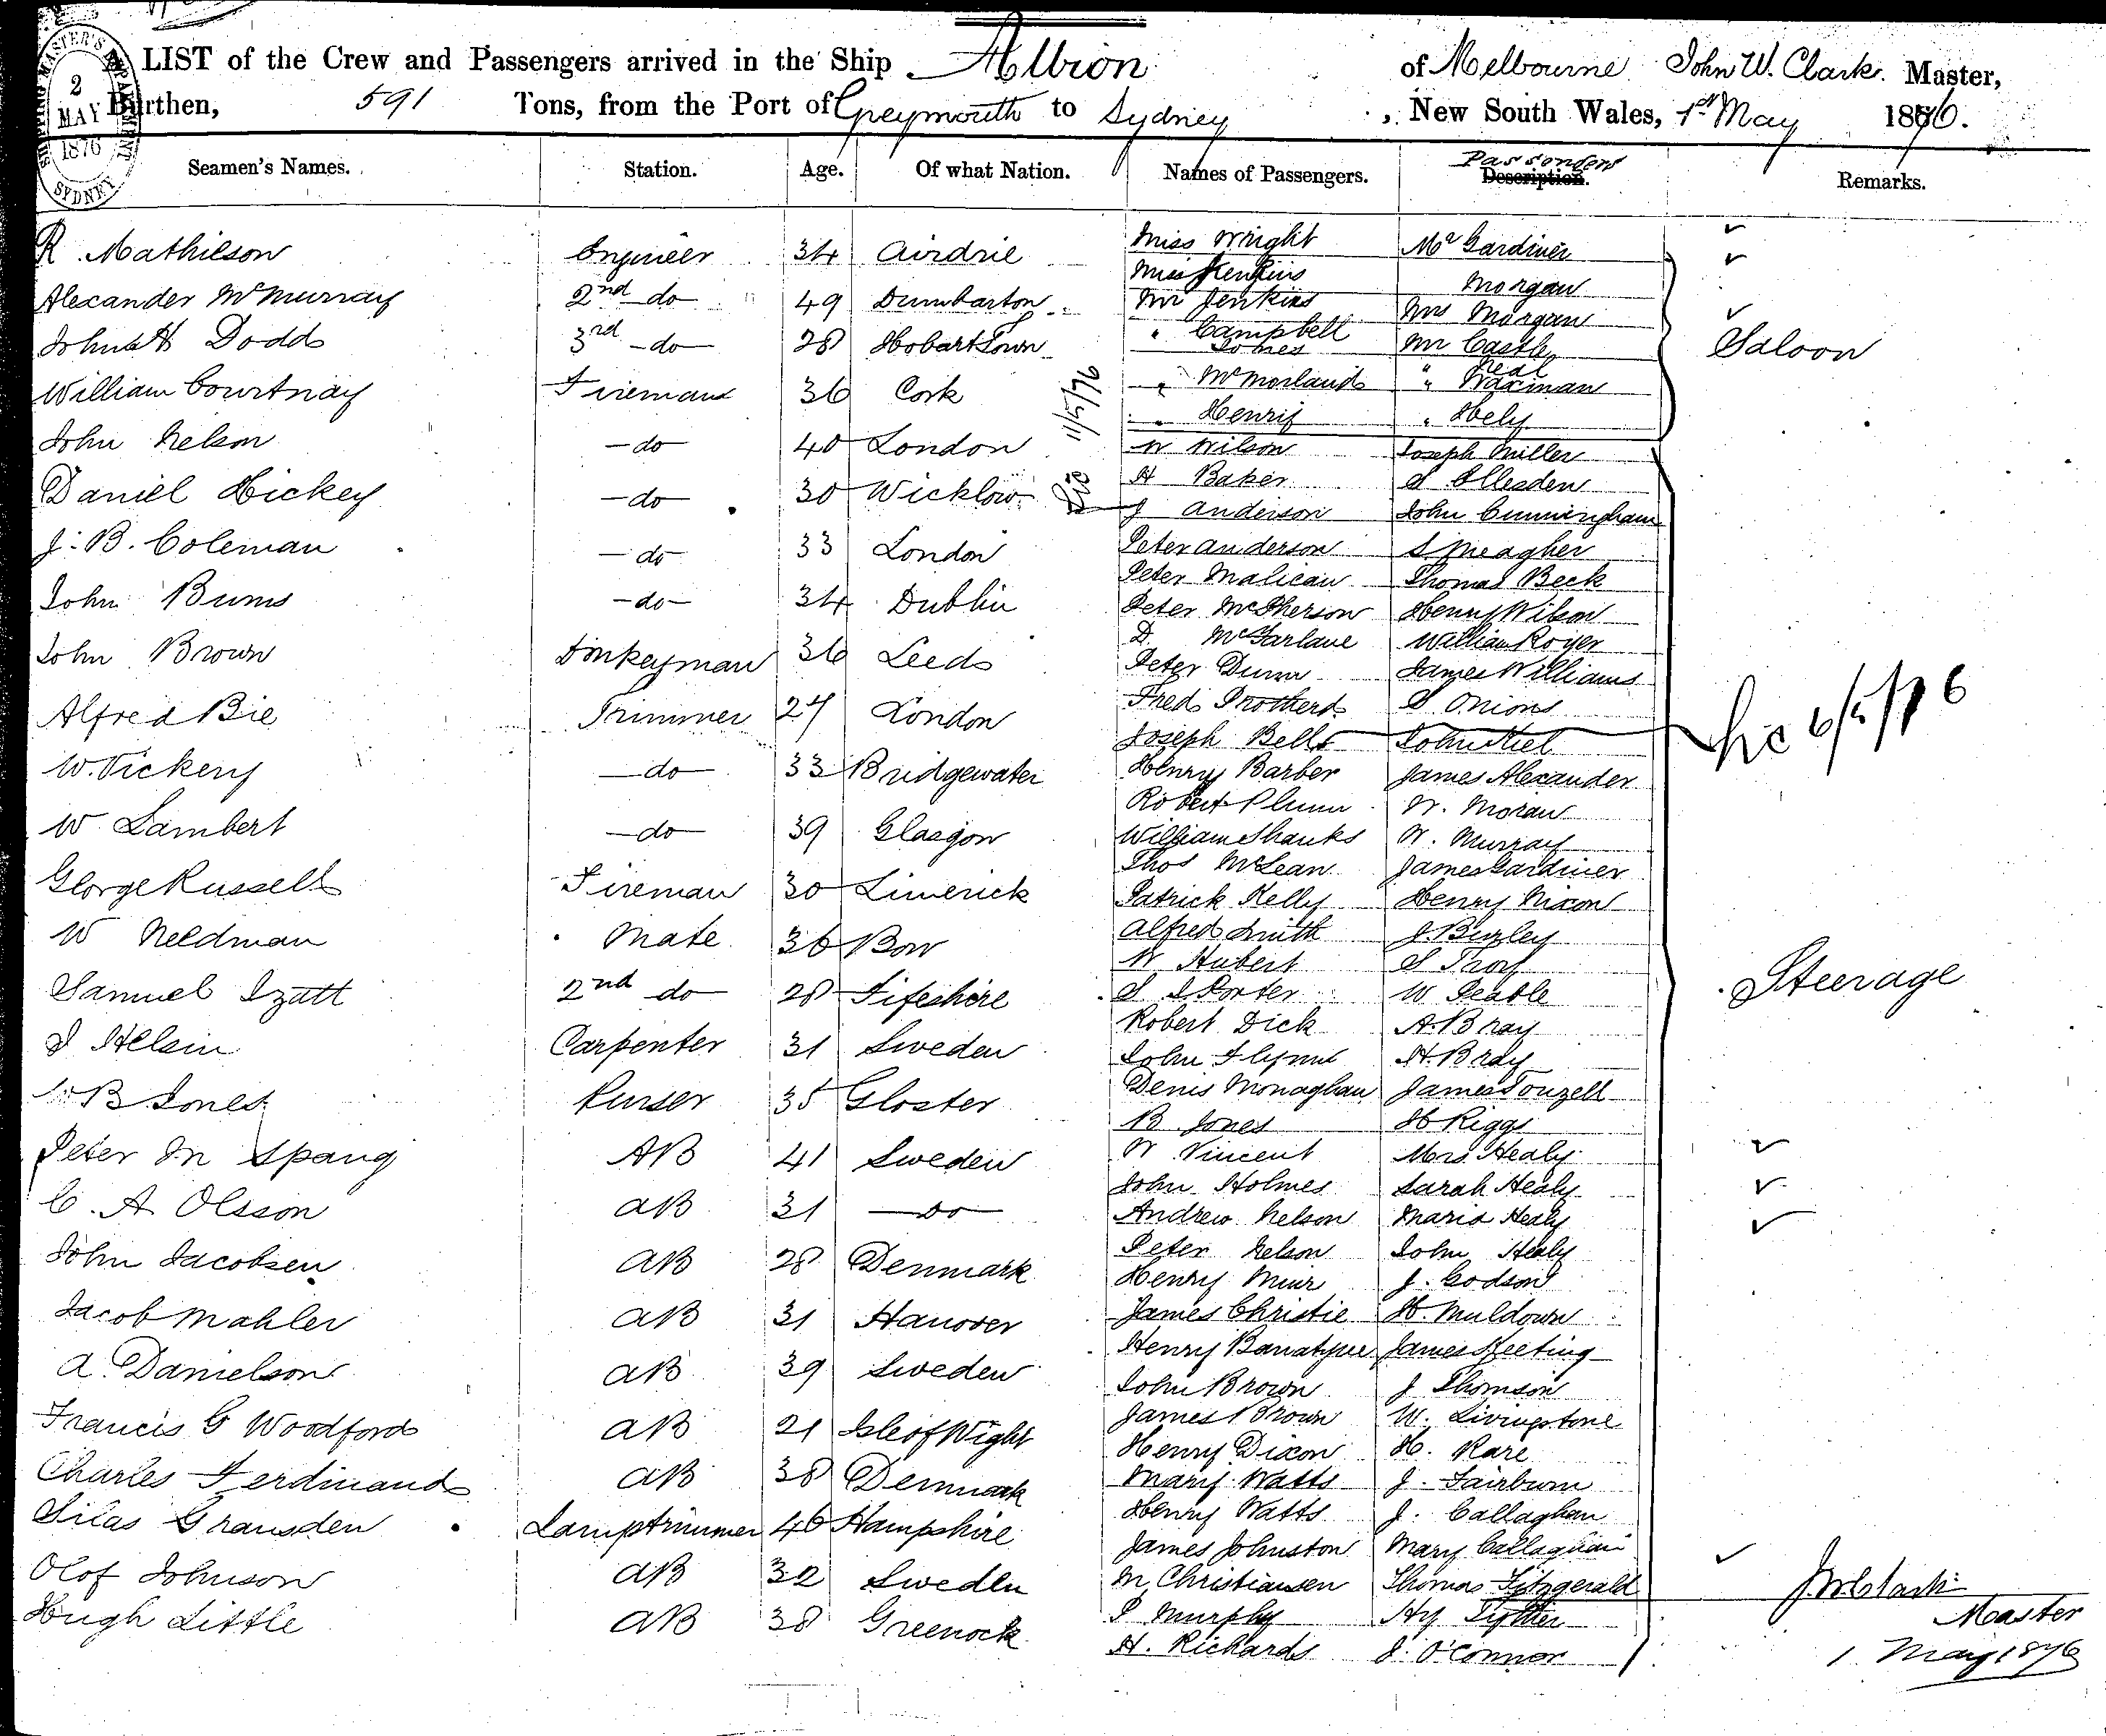 LIST of the Crew and Passengers arrived in the Ship Albion of Melbourne John W. Clark Master,
Burthen, 591 Tons, from the Port of Greymouth to Sydney, New South Wales, 1st May 1876.
2 MAY 1876 SYDNEY
Seamen's Names. Station. Age. Of what Nation. Names of Passengers. Passengers Description. Remarks.
R Mathieson Engineer 34 Airdrie
Alexander McMurray 2nd do 49 Dumbarton
John H Dodds 3rd do 28 Hobart Town
William Courtnay Fireman 36 Cork
John Nelson do 40 London
Daniel Hickey do 30 Wicklow
J. B. Coleman do 33 London
John Burns do 34 Dublin
John Brown Donkeyman 36 Leeds
Alfred Bie Trimmer 27 London
W. Vickery do 33 Bridgewater
W Lambert do 39 Glasgow
George Russell Fireman 30 Limerick
W Needman Mate 36 Bow
Samuel Izatt 2nd do 28 Fifeshire
Carpenter 31 Sweden
B Jones Purser 35 Gloster
Peter M Spang AB 41 Sweden
C. A Olsson AB 31 do
John Jacobsen AB 28 Denmark
Jacob Mahler AB 31 Hanover
A. Danielson AB 39 Sweden
Francis G Woodford AB 21 Isle of Wight
Charles Ferdinand AB 38 Denmark
Silas Gransden Lamptrimmer 46 Hampshire
Olof Johnson AB 32 Sweden
Hugh Little AB 38 Greenock
Miss Wright Mr Gardiner
Miss Jenkins Morgan
Mr Jenkins Mrs Morgan
" Campbell Mr Castle
Jones " Neal
" McMorland " Waxman
" Henry " Hely
Saloon
11/5/76
W Wilson Joseph Miller
H Baker S Ellesden
J Anderson John Cunningham
Peter Anderson S Meagher
Peter Malican Thomas Beck
Peter McPherson Henry Wilson
D. McFarlane William Royer
Peter Dunn James Williams
Fred Brothers S Onions
Joseph Bell John
6/5/76
Henry Barber James Alexander
Robert Plunn W. Moran
William Shanks W. Murray
Thos McLean James Gardiner
Patrick Kelly Henry Nixon
Alfred Smith J. Buzley
W Hubert S
S Porter W Peable
Robert Dick A. Bray
John Flynn H. Bray
Denis Monaghan James Touzell
B Jones H Riggs
W Vincent Mrs Healy
John Holmes Sarah Healy
Andrew Nelson Maria Healy
Peter Nelson John Healy
Henry Muir J. Godson
James Christie H. Muldown
Henry James Keeting
John Brown J Thomson
James Brown W. Livingstone
Henry Dixon H. Rare
Mary Watts J. Fairburn
Henry Watts J. Callaghan
James Johnston Mary Callaghan
M Christiansen Thomas Fitzgerald
P Murphy Hy
H. Richards J. O'Connor
Steerage
J W Clark
Master
1 May 1876